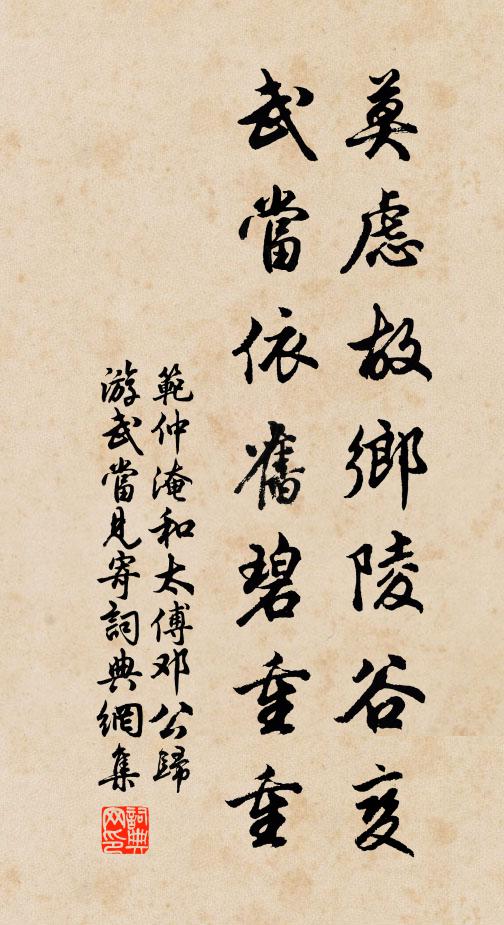 莫慮故鄉陵谷变
武當依舊碧重重
範仲淹和太傅邓公歸
游武當見寄詞典網集
詞典
网印